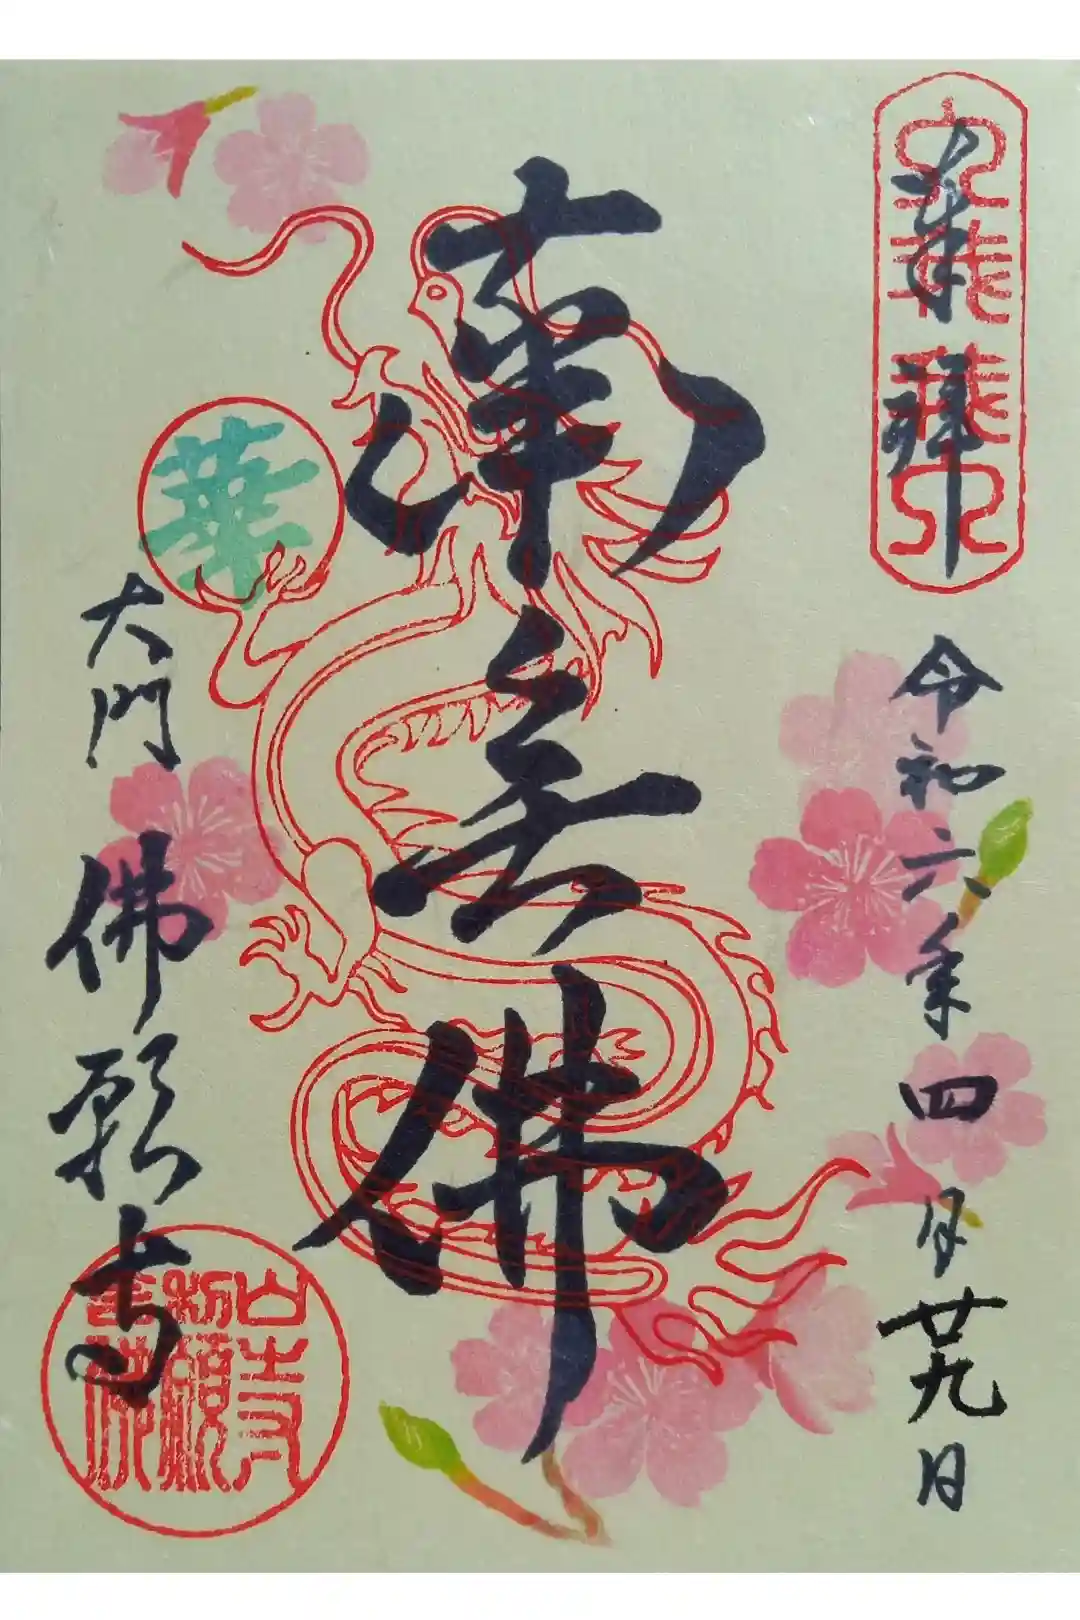 奉拝
令和六年四月廿九日
南無佛
華
大門 佛願寺